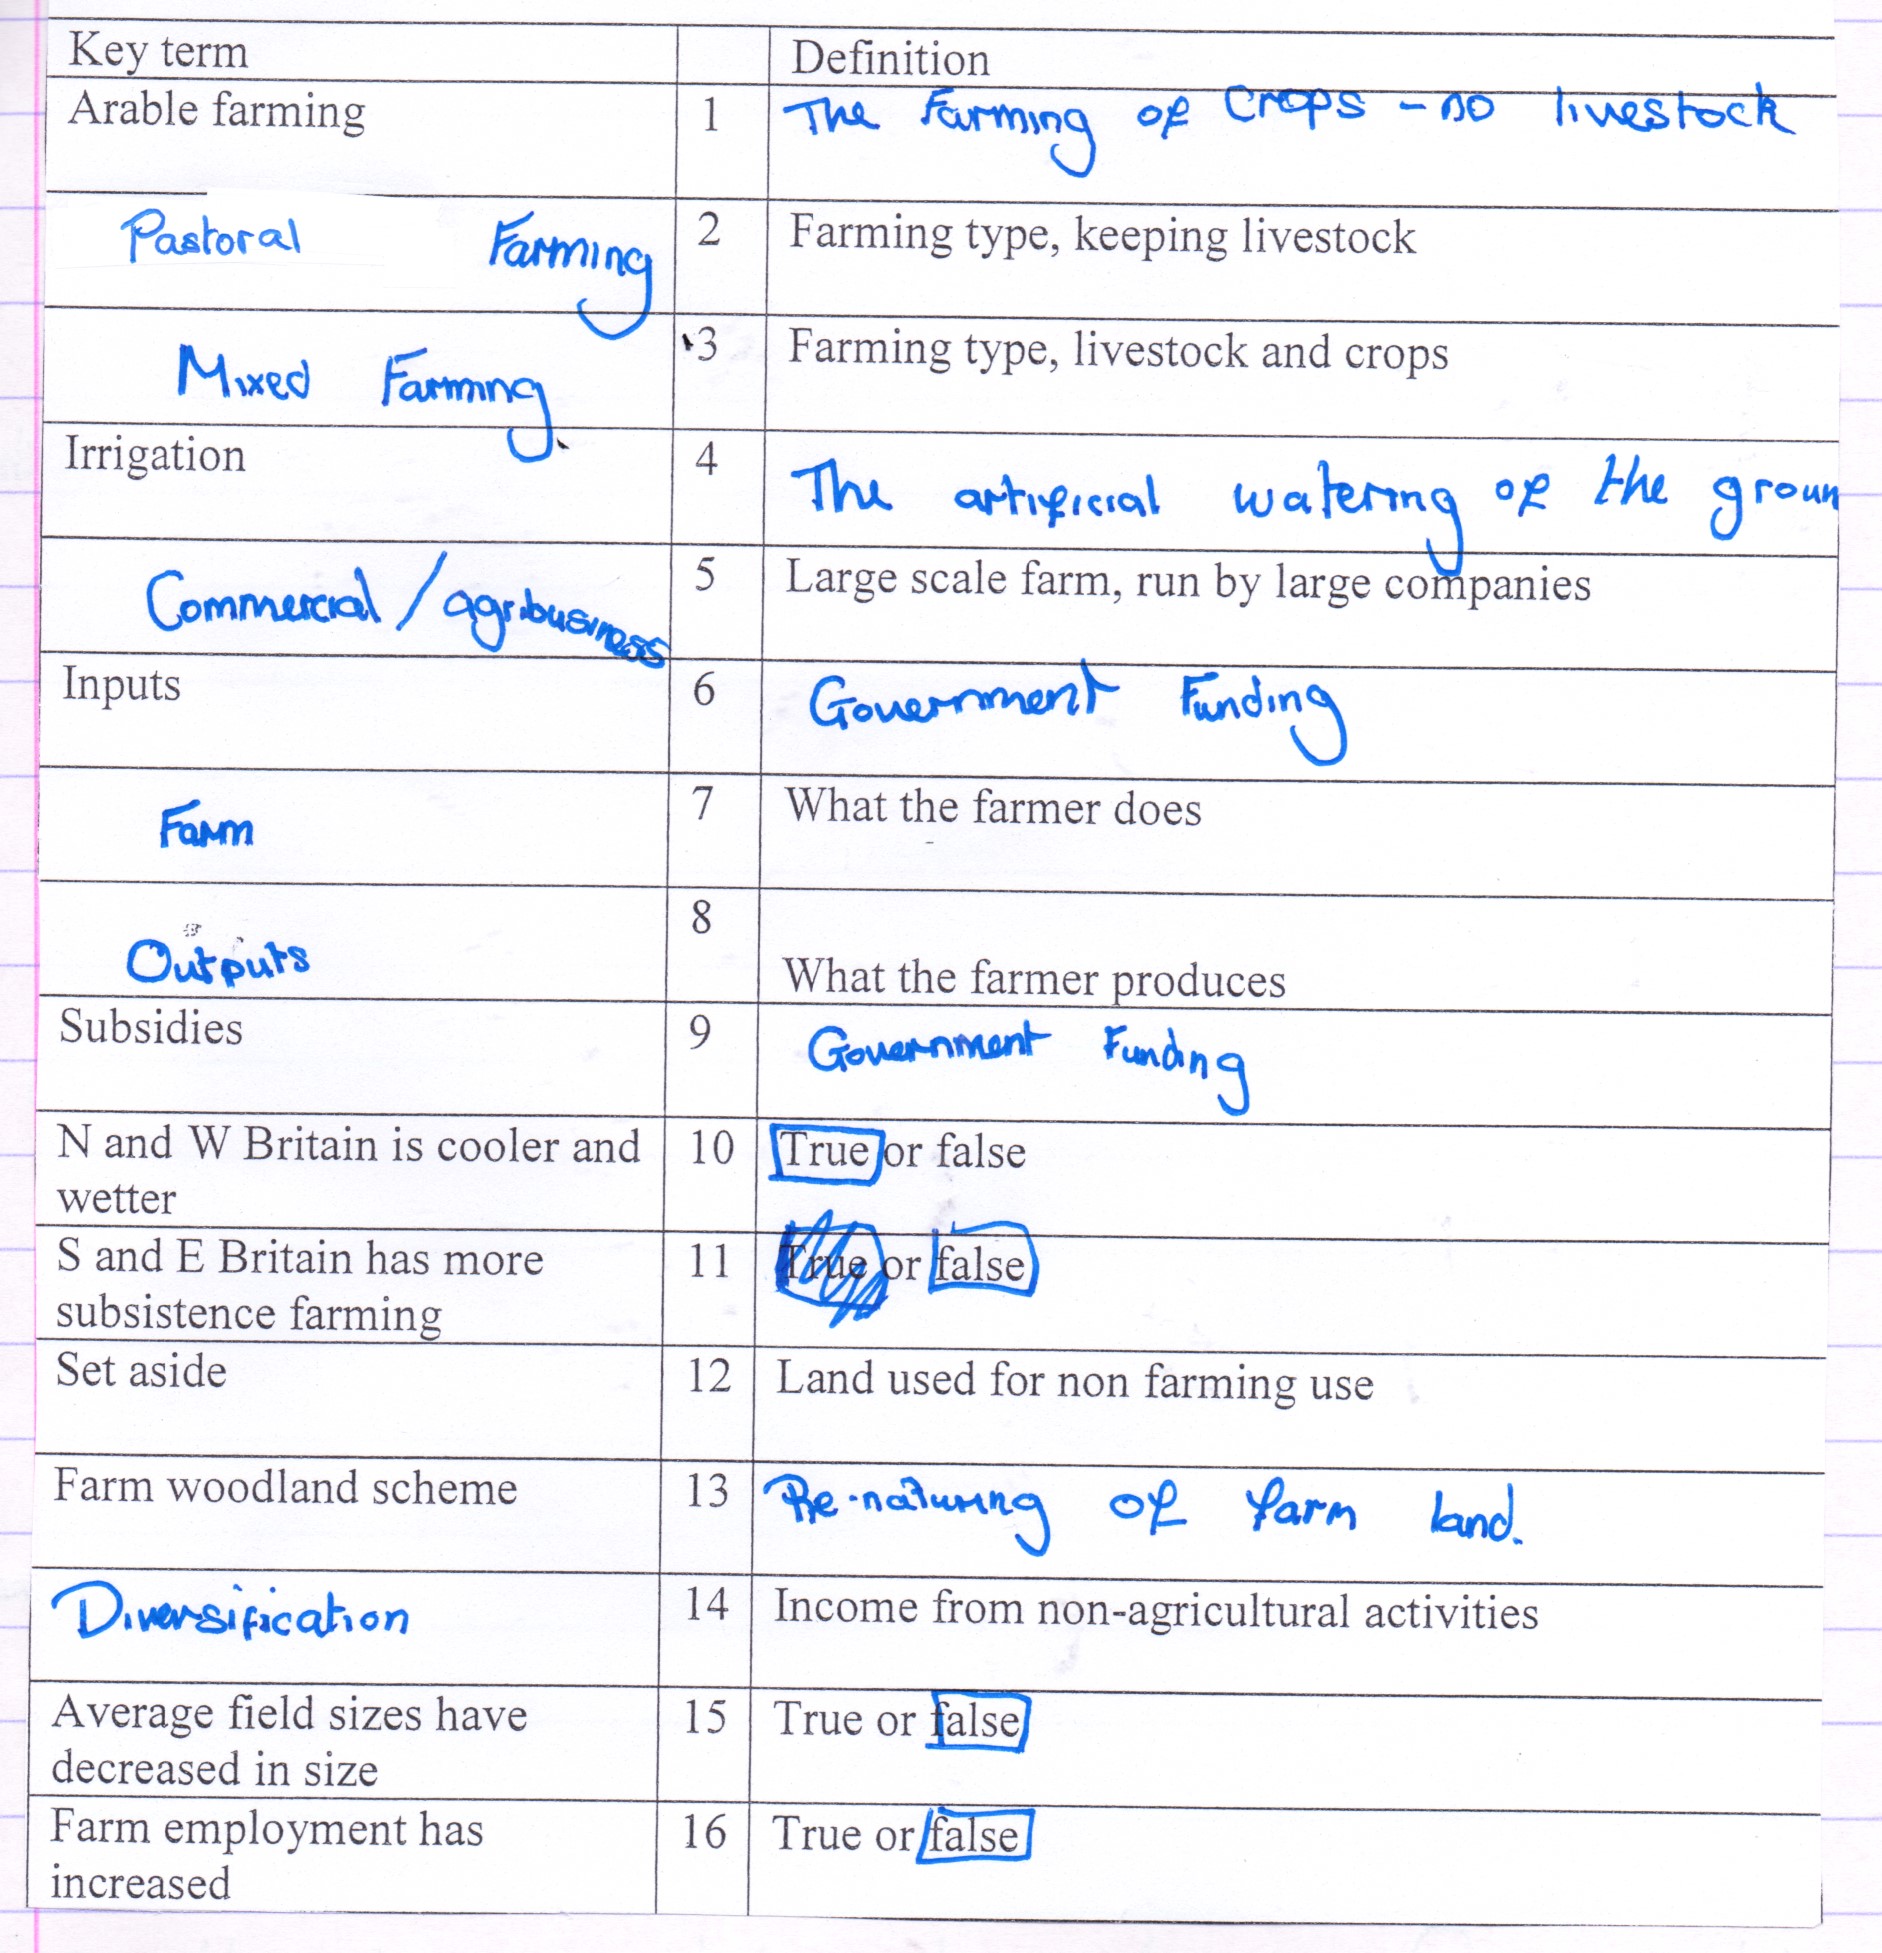 Key term Definition
Arable farming 1 The Farming of Crops - no livestock
Pastoral Farming 2 Farming type, keeping livestock
Mixed Farming 3 Farming type, livestock and crops
Irrigation 4 The artificial watering of the groun
Commercial / agribusiness 5 Large scale farm, run by large companies
Inputs 6 Government Funding
Farm 7 What the farmer does
8
Outputs What the farmer produces
Subsidies 9 Government Funding
N and W Britain is cooler and 10 True or false
wetter
S and E Britain has more 11 True or false
subsistence farming
Set aside 12 Land used for non farming use
Farm woodland scheme 13 Re-naturing of farm land.
Diversification 14 Income from non-agricultural activities
Average field sizes have 15 True or false
decreased in size
Farm employment has 16 True or false
increased